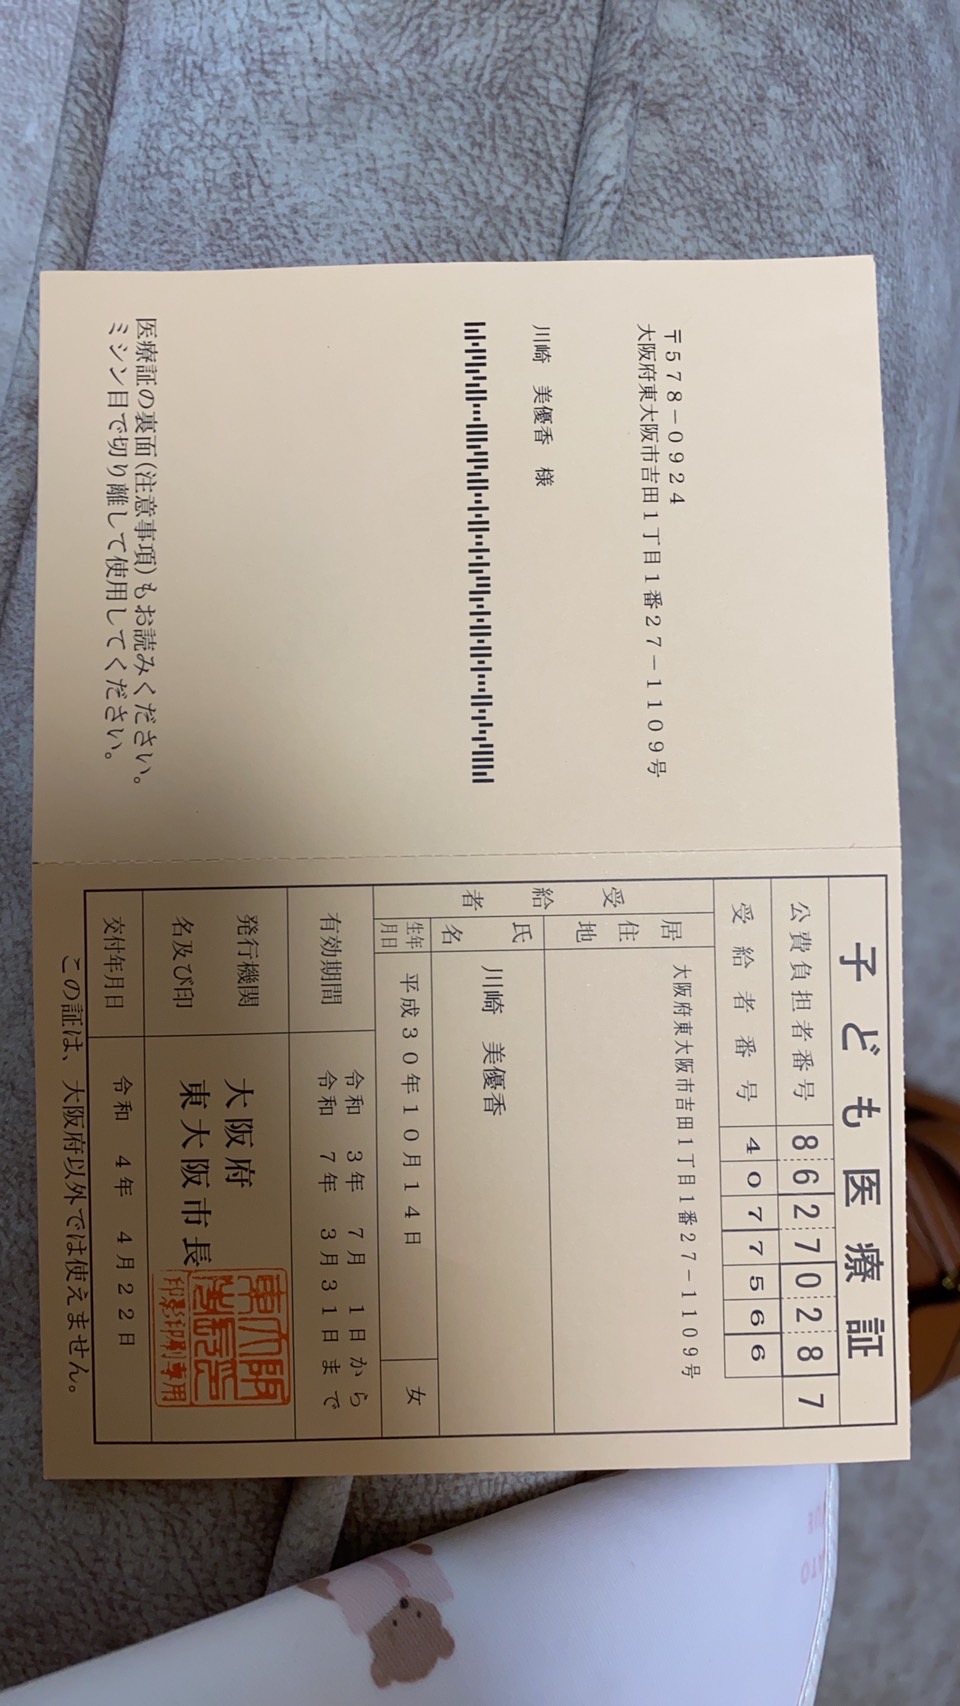 〒578-0924
大阪府東大阪市吉田1丁目1番27-1109号
川崎 美優香 様
医療証の裏面(注意事項)もお読みください。
ミシン目で切り離して使用してください。
子ども医療証
公費負担者番号 86270287
受給者番号 4077566
受給者
居住地 大阪府東大阪市吉田1丁目1番27-1109号
氏名 川崎 美優香
生年月日 平成30年10月14日 女
有効期間 令和 3年 7月 1日から
令和 7年 3月31日まで
発行機関名及び印 大阪府
東大阪市長
東大阪市長之印
印影印刷専用
交付年月日 令和 4年 4月22日
この証は、大阪府以外では使えません。